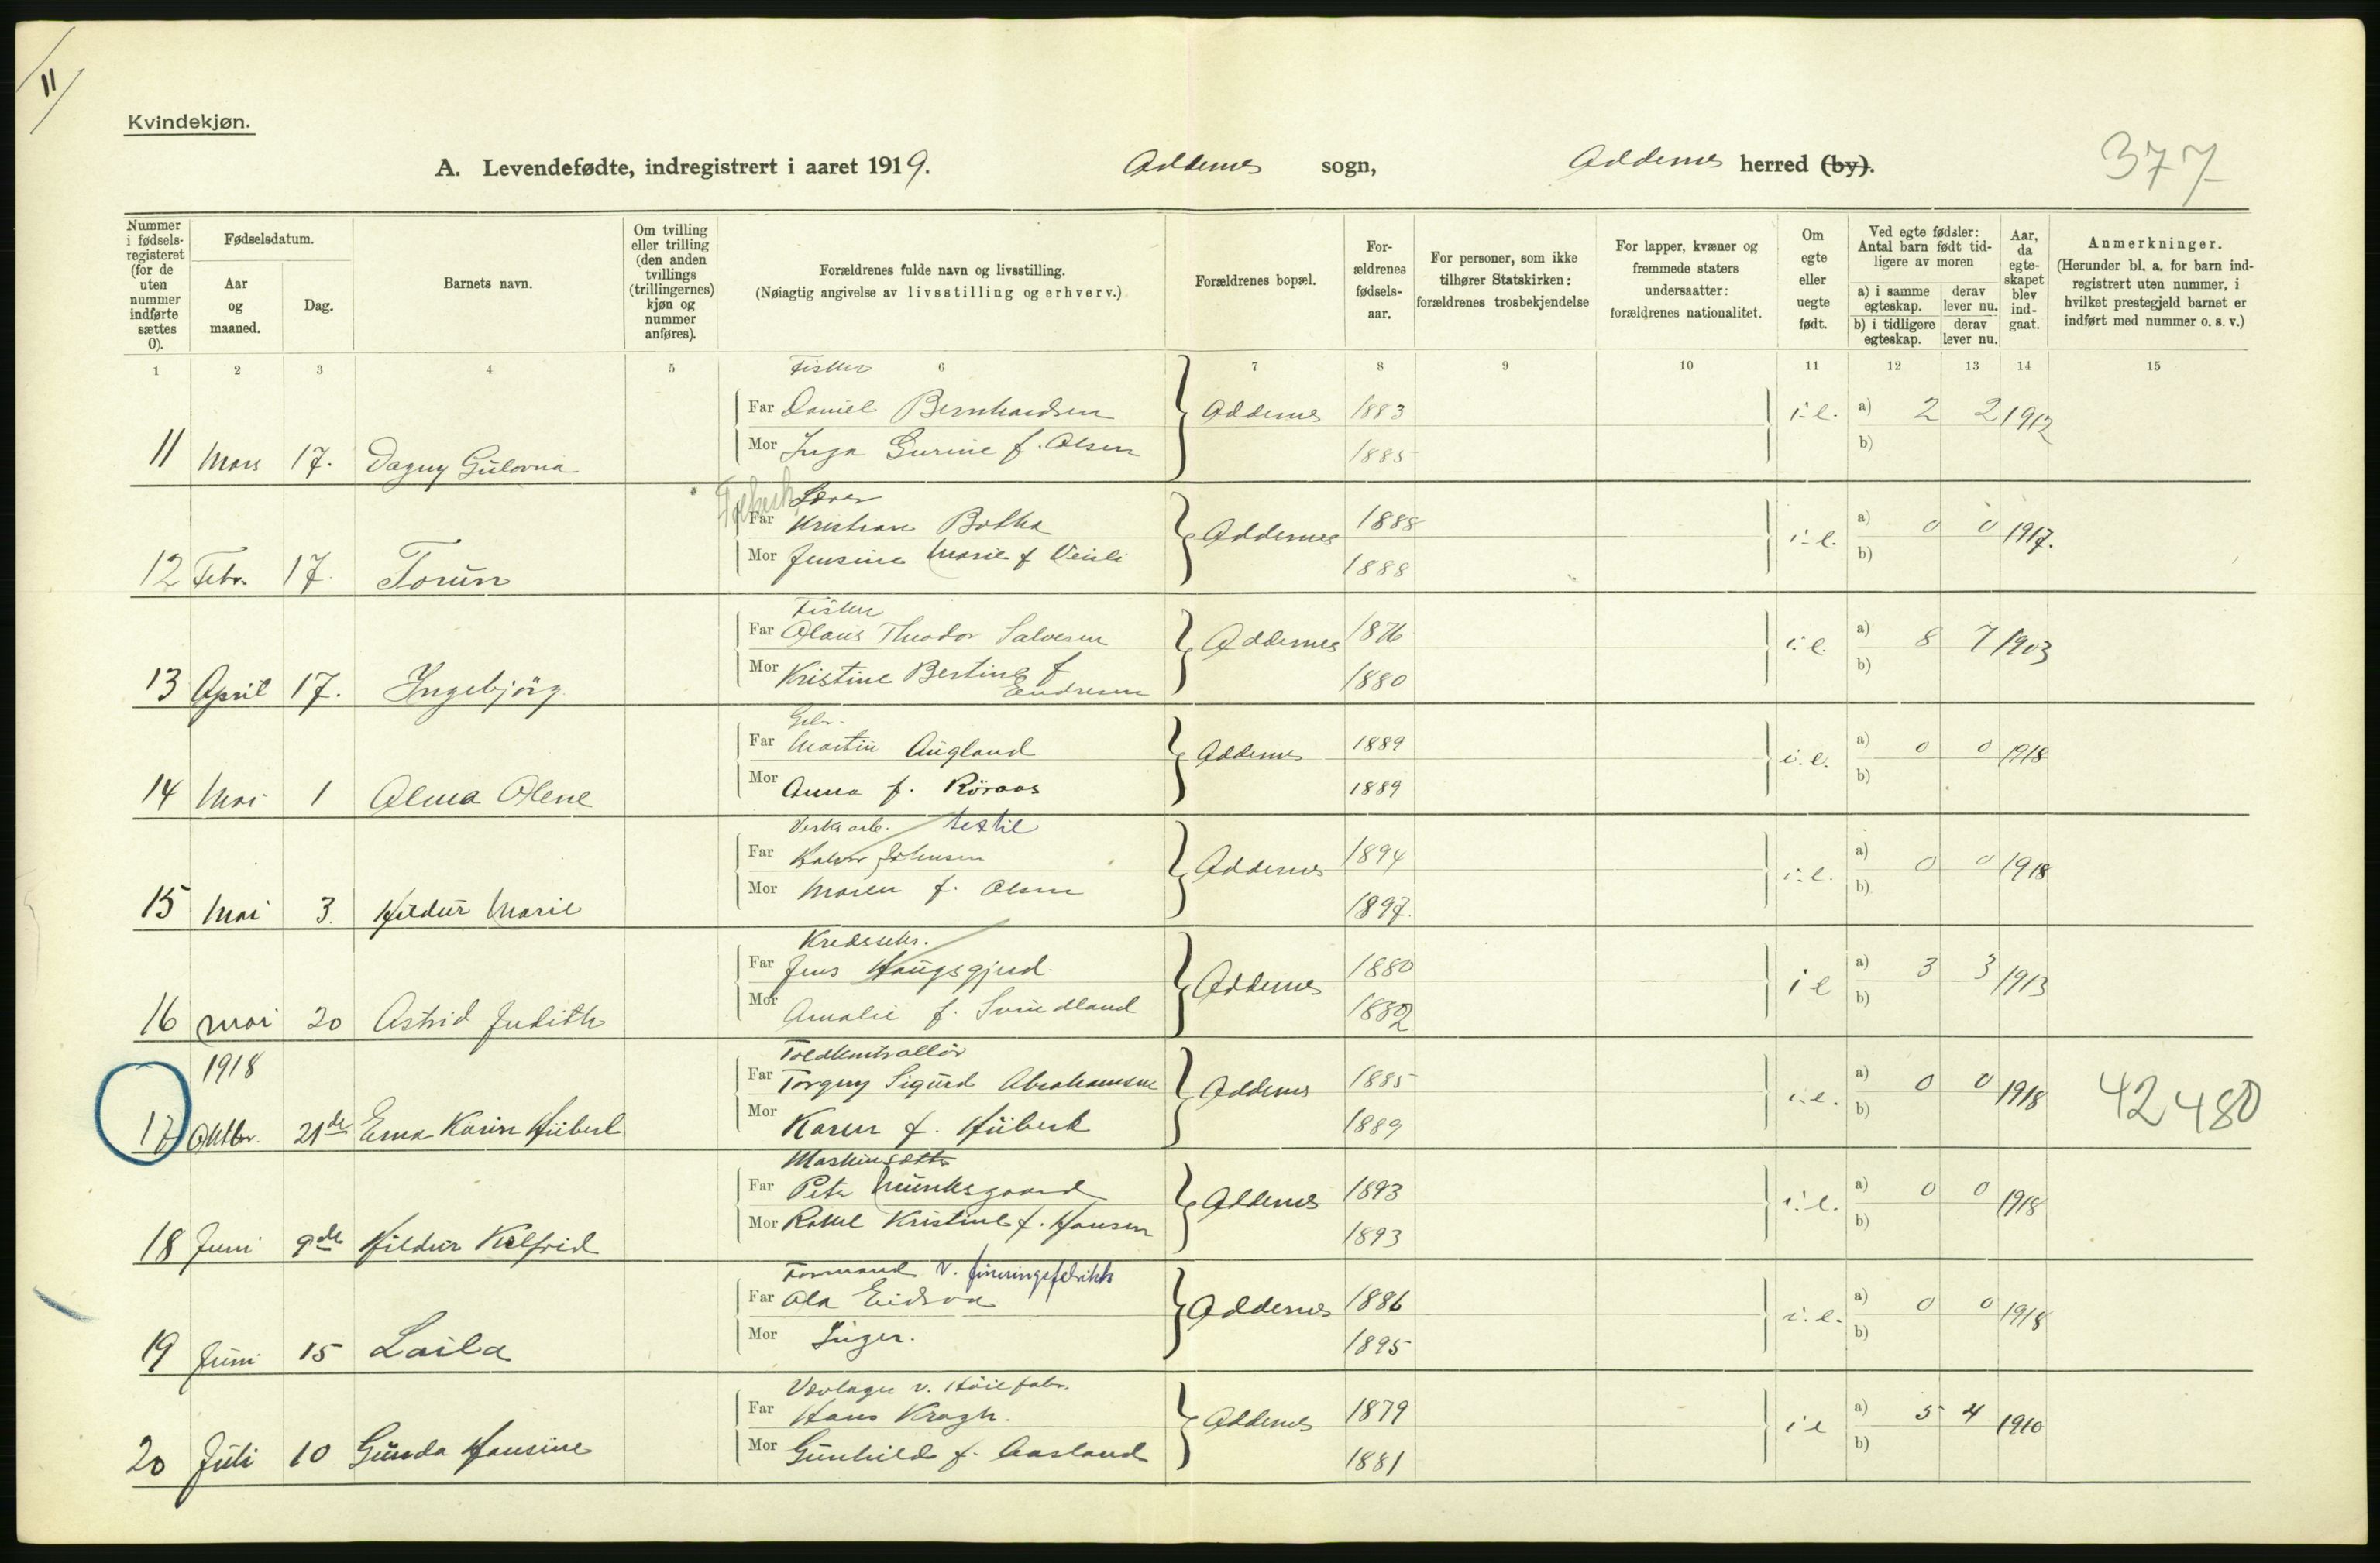 11
Kvindekjøn.
A. Levendefødte, indregistrert i aaret 1919. Oddernes sogn, Oddernes herred (by). 377
Nummer i fødselsregisteret (for de uten nummer indførte sættes 0).
Fødselsdatum.
Aar og maaned.
Dag.
Barnets navn.
Om tvilling eller trilling (den anden tvillings (trillingernes) kjøn og nummer anføres).
Forældrenes fulde navn og livsstilling.
(Nøiagtig angivelse av livsstilling og erhverv.)
Forældrenes bopæl.
Forældrenes fødselsaar.
For personer, som ikke tilhører Statskirken: forældrenes trosbekjendelse
For lapper, kvæner og fremmede staters undersaatter: forældrenes nationalitet.
Om egte eller uegte født.
Ved egte fødsler: Antal barn født tidligere av moren
a) i samme egteskap. derav lever nu.
b) i tidligere egteskap. derav lever nu.
Aar, da egteskapet blev indgaat.
Anmerkninger.
(Herunder bl. a. for barn indregistrert uten nummer, i hvilket prestegjeld barnet er indført med nummer o. s. v.)
1 2 3 4 5 6 7 8 9 10 11 12 13 14 15
Fisker
Far Daniel Bernhardsen Oddernes 1883 i.e. a) 2 2 1912
Mor Inga Gurine f. Olsen 1885 b)
11 Mars 17. Dagny Gulovna
Lærer
Far Kristian Botka Oddernes 1888 i.e. a) 0 0 1917.
Mor Jensine Marie f 1888 b)
12 Febr. 17. Torun
Fisker
Far Olaus Theodor Salvesen Oddernes 1876 i.e. a) 8 7 1903
Mor Kristine Bertine f Endresen 1880 b)
13 April 17. Ingebjörg
Gbr.
Far Martin Augland Oddernes 1889 i.e. a) 0 0 1918
Mor Anna f. Röraas 1889 b)
14 Mai 1 Alma Olene
Verksarb. textil
Far Halvor Johnsen Oddernes 1894 i.e. a) 0 0 1918
Mor Maren f. Olsen 1897. b)
15 Mai 3. Hildur Marie
Kredssekr.
Far Jens Haugsgjerd. Oddernes 1880 i e a) 3 3 1913
Mor Amalie f. Svindland 1882 b)
16 Mai 20 Astrid Judith
1918
Toldkontrollör
Far Torguy Sigurd Abrahamsen Oddernes 1885 i.e. a) 0 0 1918 42480
Mor Karen f. Hübert 1889 b)
17 Oktbr. 21de Erna Karin Hübert
Maskinsætter
Far Peter Munksgaard Oddernes 1893 i.e. a) 0 0 1918
Mor Rakel Kristine f. Hansen 1893 b)
18 Juni 9de Hildur Kelfrid
Formand v. fineringsfabrikk
Far Ola Eidsvik Oddernes 1886 i.e. a) 0 0 1918
Mor Inger. 1895 b)
19 Juni 15 Laila
v. Höie fabr.
Far Hans Kragh. Oddernes 1879 i e a) 5 4 1910
Mor Gunhild f. Aasland 1881 b)
20 Juli 10 Gunda Hansine